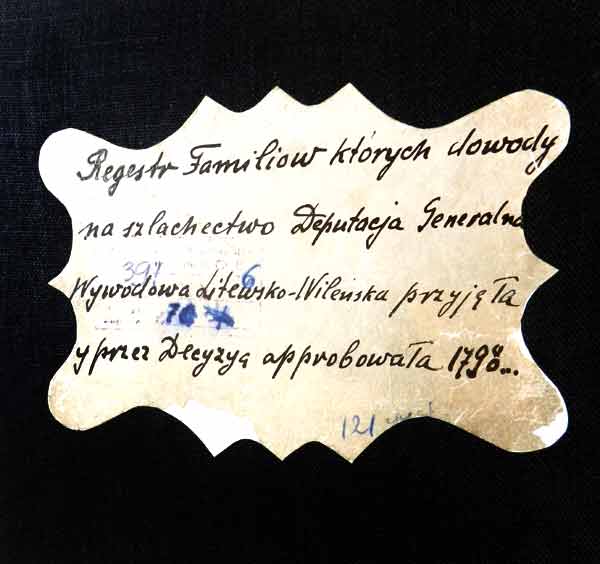 Regestr Familiow których dowody
na szlachectwo Deputacja Generalna
397 6
Wywodowa Litewsko-Wileńska przyjęła
76
y przez Decyzyą approbowała 1798...
121